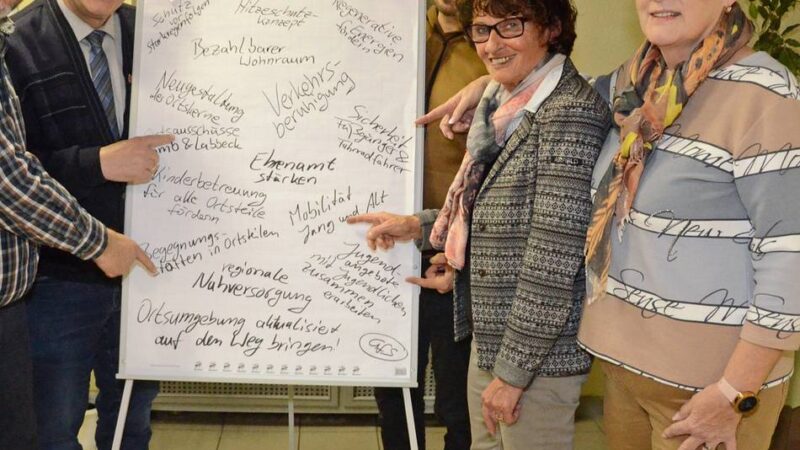 Schutz
vor
Starkregenfolgen
Hitzeschutz-
konzept
Regenerative
Energien
fördern
Bezahlbarer
Wohnraum
Neugestaltung
der Ortskerne
Verkehrs-
beruhigung
Sicherheit
Fußgänger &
Fahrradfahrer
tsausschüsse
mb & Labbeck
Ehrenamt
stärken
Kinderbetreuung
für alle Ortsteile
fördern
Mobilität
Jung und Alt
Begegnungs-
stätten in Ortskernen
Jugend-
angebote
mit Jugendlichen
zusammen
erarbeiten
regionale
Nahversorgung
Ortsumgehung aktualisiert
auf den Weg bringen!
Sense